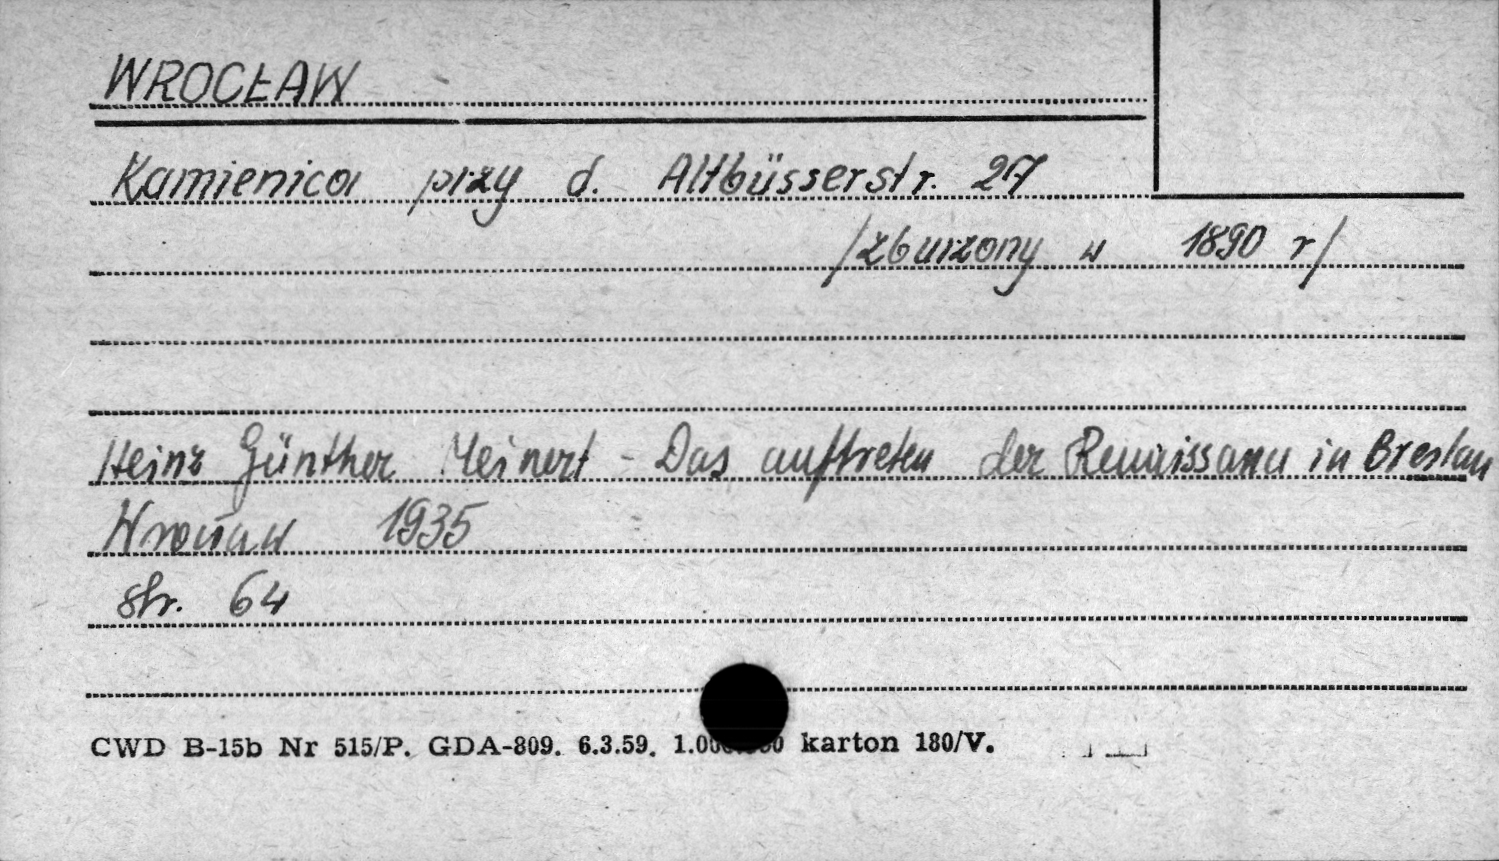 WROCŁAW
Kamienica przy d. Altbüsserstr. 27
/zburzony w 1890 r/
Heinz Günther Meinert - Das auftreten der Renaissance in Breslau
Wrocław 1935
str. 64
CWD B-15b Nr 515/P. GDA-809. 6.3.59. karton 180/V.